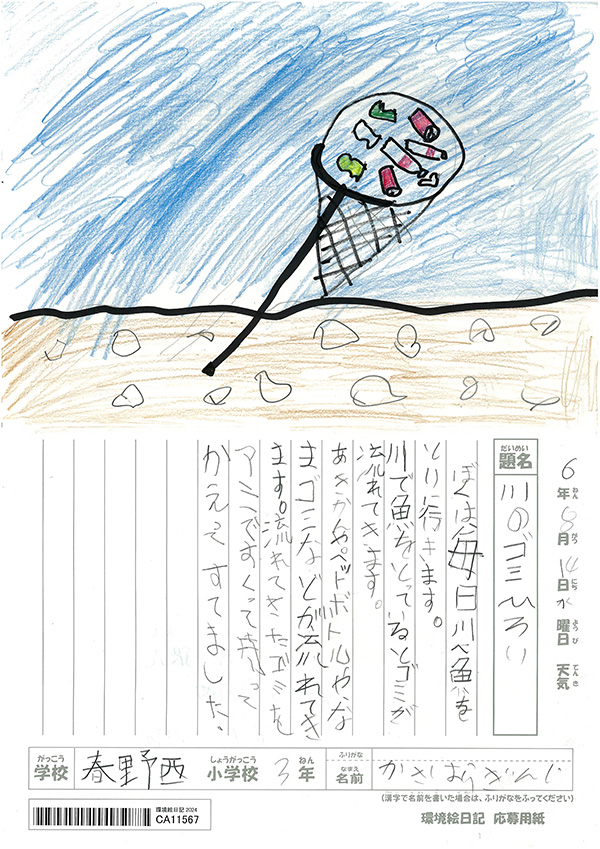 6年8月14日曜日 天気
ねん がつ にち ようび てんき
だいめい
題名 川のゴミひろい
ぼくは毎日川へ魚を
とりに行きます。
川で魚をとっているとゴミが
流れてきます。
あきかんやペットボトルやな
まゴミなどが流れてき
ます。流れてきたゴミを
アミですくって持って
かえってすてました。
がっこう しょうがっこう ねん ふりがな なまえ
学校 春野西 小学校 3年 名前
(漢字で名前を書いた場合は、ふりがなをふってください)
環境絵日記 2024
CA11567
環境絵日記 応募用紙